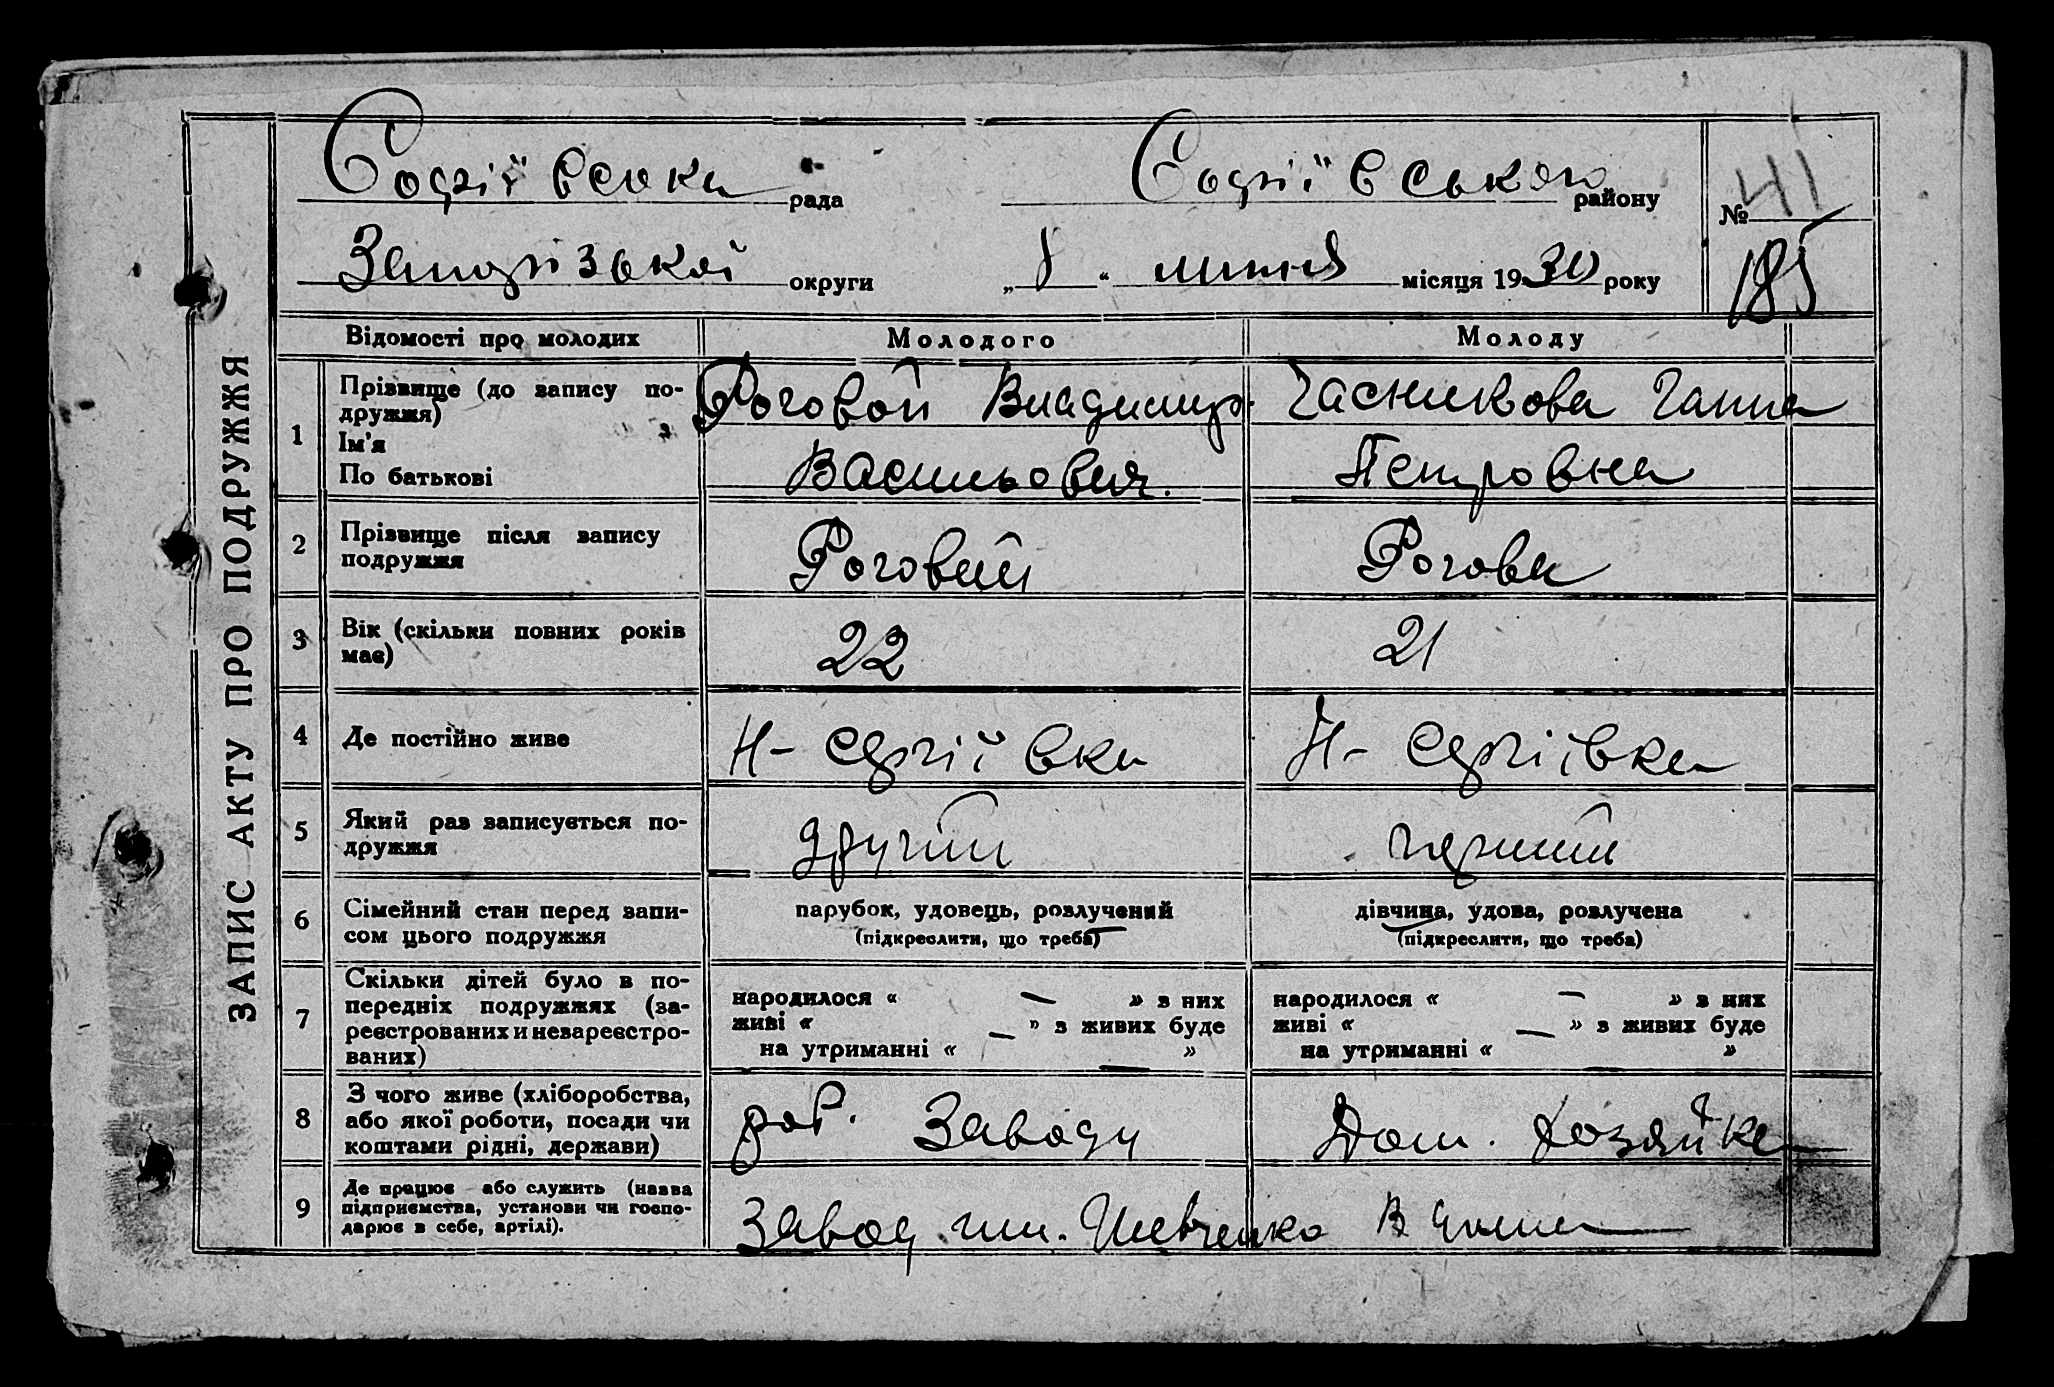 ЗАПИС АКТУ ПРО ПОДРУЖЖЯ
Софіївська рада
Софіївського району
№ 41
185
Запорізької округи
„8“ липня місяця 1930 року
Відомості про молодих
Молодого
Молоду
1
Прізвище (до запису по-
дружжя)
Ім'я
По батькові
Роговой Владимир
Васильович.
Часникова Ганна
Петровна
2
Прізвище після запису
подружжя
Роговий
Рогова
3
Вік (скільки повних років
має)
22
21
4
Де постійно живе
Н-Сергіївка
Н-Сергіївка
5
Який раз записується по-
дружжя
другий
первий
6
Сімейний стан перед запи-
сом цього подружжя
парубок, удовець, розлучений
(підкреслити, що треба)
дівчина, удова, розлучена
(підкреслити, що треба)
7
Скільки дітей було в по-
передніх подружжях (за-
реєстрованих и незареєстро-
ваних)
народилося « — » з них
живі « — » з живих буде
на утриманні « — »
народилося « — » з них
живі « — » з живих буде
на утриманні « »
8
З чого живе (хліборобства,
або якої роботи, посади чи
коштами рідні, держави)
роб. Заводу
Дом. хозяйка
9
Де працює або служить (назва
підприємства, установи чи госпо-
дарює в себе, артілі).
Завод им. Шевченко